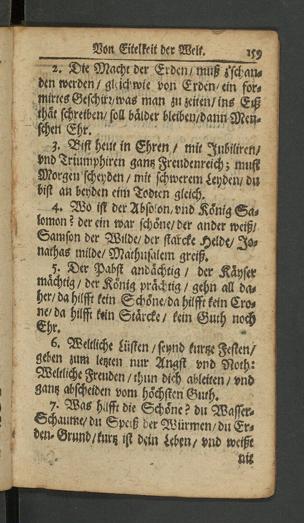 Von Eitelkeit der Welt. 159
2. Die Macht der Erden/ muß zschan-
den werden/ gleich wie von Erden/ ein for-
mirtes Geschirr/ was man zu zeiten/ ins Eiß
thät schreiben/ soll bälder bleiben/ dann Men-
schen Ehr.
3. Bist heut in Ehren/ mit Jubiliren/
vnd Triumphiren gantz Freudenreich; must
Morgen scheyden/ mit schwerem Leyden/ du
bist an beyden eim Todten gleich.
4. Wo ist der Absolon, vnd König Sa-
lomon? der ein war schöne/ der ander weiß/
Samson der Wilde/ der starcke Helde/ Jo-
nathas milde/ Mathusalem greiß.
5. Der Pabst andächtig/ der Käyser
mächtig/ der König prächtig/ gehn all da-
her/ da hilfft kein Schöne/ da hilfft kein Cro-
ne/ da hilfft kein Stärcke/ kein Guth noch
Ehr.
6. Weltliche Lüsten/ seynd kurtze Festen/
geben zum letzten nur Angst vnd Noth:
Weltliche Freuden/ thun dich ableiten/ vnd
gantz abscheiden vom höchsten Guth.
7. Was hilfft die Schöne? du Wasser-
Schaume/ du Speiß der Würmen/ du Er-
den-Grund/ kurtz ist dein Leben/ vnd weißt
nit